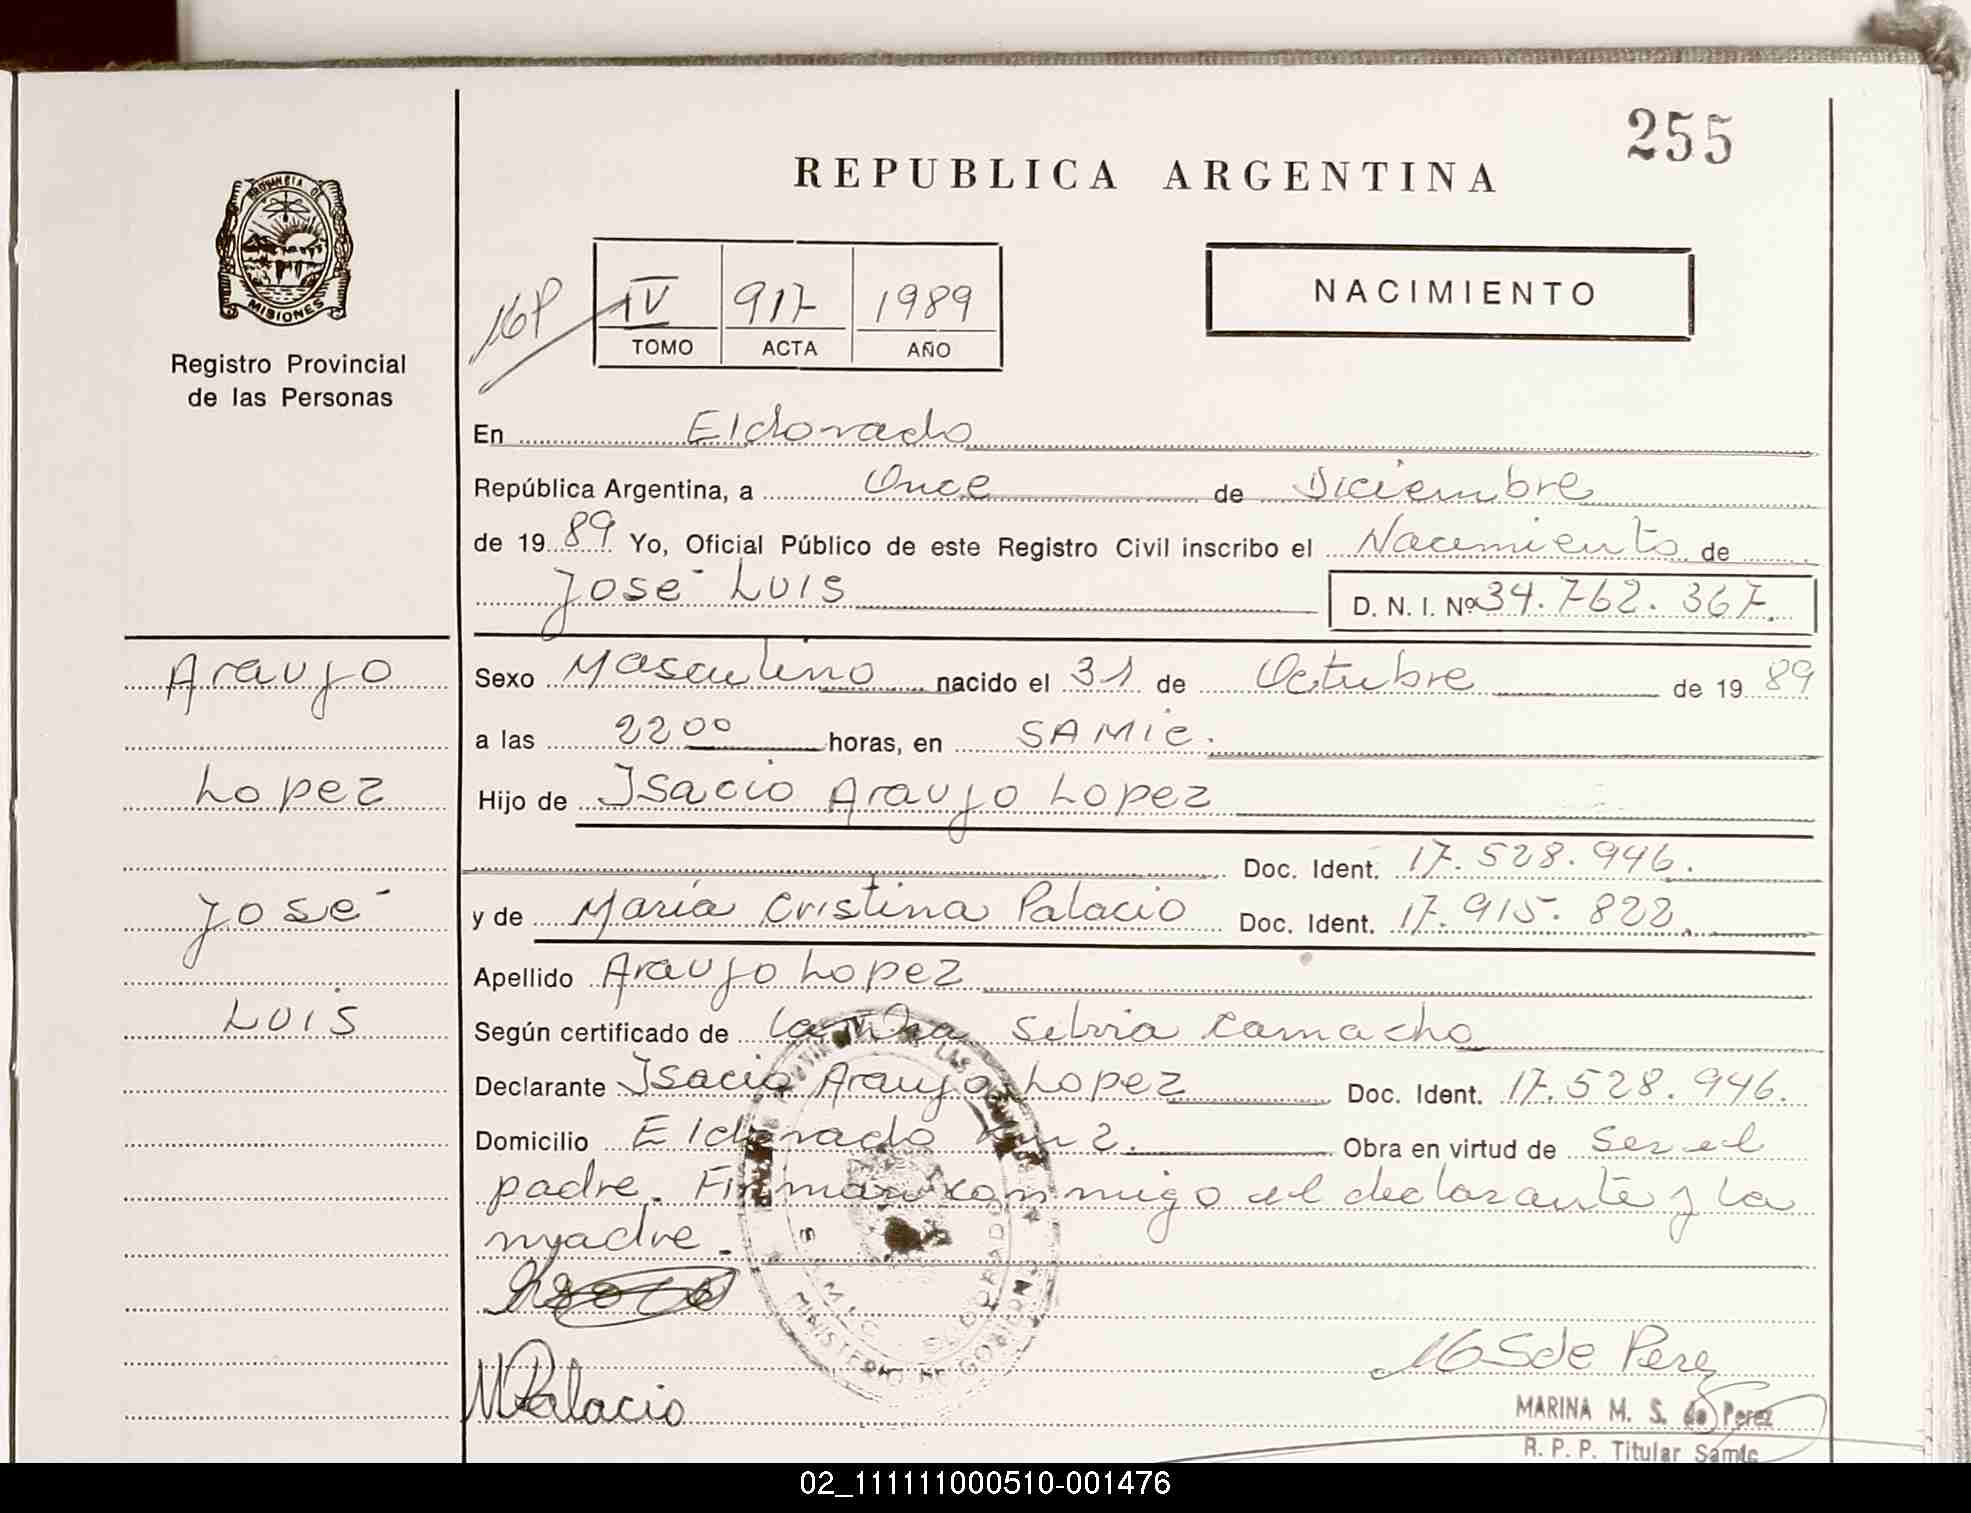 255
REPUBLICA ARGENTINA
PROVINCIA DE
MISIONES
Registro Provincial
de las Personas
IV 917 1989
TOMO ACTA AÑO
NACIMIENTO
En Eldorado
República Argentina, a Once de Diciembre
de 1989 Yo, Oficial Público de este Registro Civil inscribo el Nacimiento de
José Luis D. N. I. Nº 34.762.367.
Araujo
Lopez
José
Luis
Sexo Masculino nacido el 31 de Octubre de 1989
a las 22 00 horas, en SAMic.
Hijo de Isacio Araujo Lopez
Doc. Ident. 17.528.946.
y de María Cristina Palacio Doc. Ident. 17.915.822.
Apellido Araujo Lopez
Según certificado de Silvia Camacho
Declarante Isacio Araujo Lopez Doc. Ident. 17.528.946.
Domicilio Eldorado km 2. Obra en virtud de ser el
padre. Firman conmigo el declarante y la
madre.
MINISTERIO DE GOBIERNO
ELDORADO
MPalacio
MSde Perez
MARINA M. S. de Perez
R. P. P. Titular Samic
02_111111000510-001476